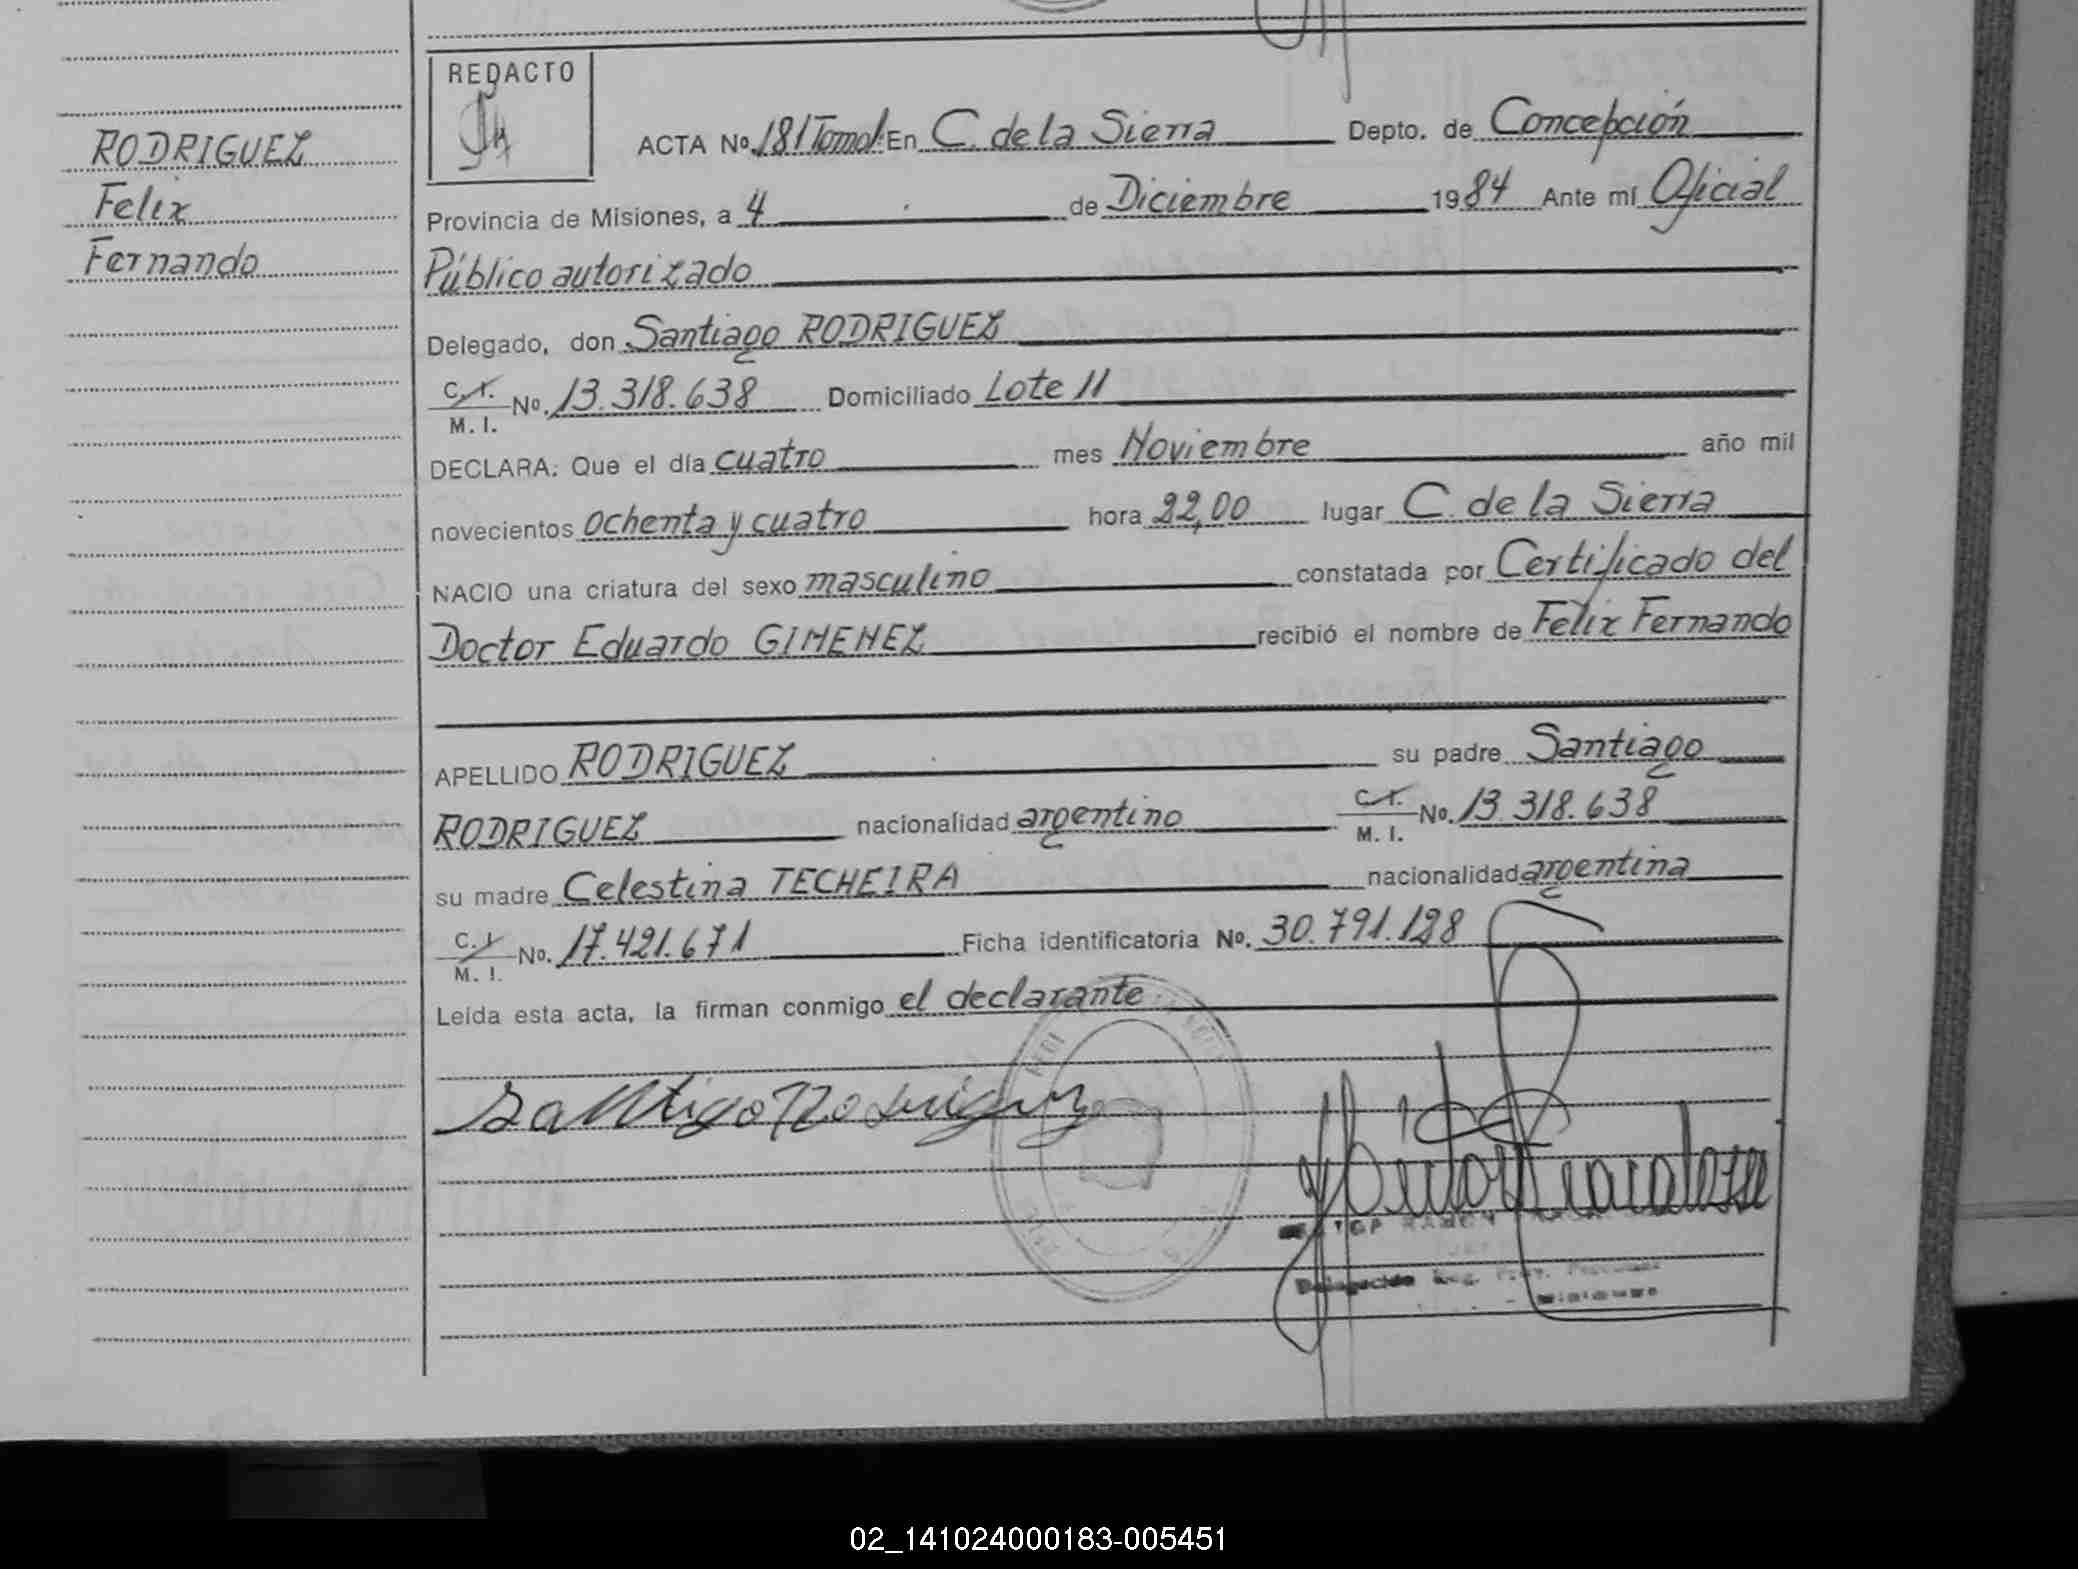 RODRIGUEZ
Felix
Fernando
REDACTO
ACTA No. 181 Tomo I En C. de la Sierra Depto. de Concepción
Provincia de Misiones, a 4 de Diciembre 1984 Ante mí Oficial
Público autorizado
Delegado, don Santiago RODRIGUEZ
C. I.
M. I. No. 13.318.638 Domiciliado Lote 11
DECLARA: Que el día cuatro mes Noviembre año mil
novecientos ochenta y cuatro hora 22,00 lugar C. de la Sierra
NACIO una criatura del sexo masculino constatada por Certificado del
Doctor Eduardo GIMENEZ recibió el nombre de Felix Fernando
APELLIDO RODRIGUEZ su padre Santiago
RODRIGUEZ nacionalidad argentino C. I. M. I. No. 13.318.638
su madre Celestina TECHEIRA nacionalidad argentina
C. I.
M. I. No. 17.421.671 Ficha identificatoria No. 30.791.128
Leída esta acta, la firman conmigo el declarante
Santigo Rodriguez
RAMON
Delegación
02_141024000183-005451